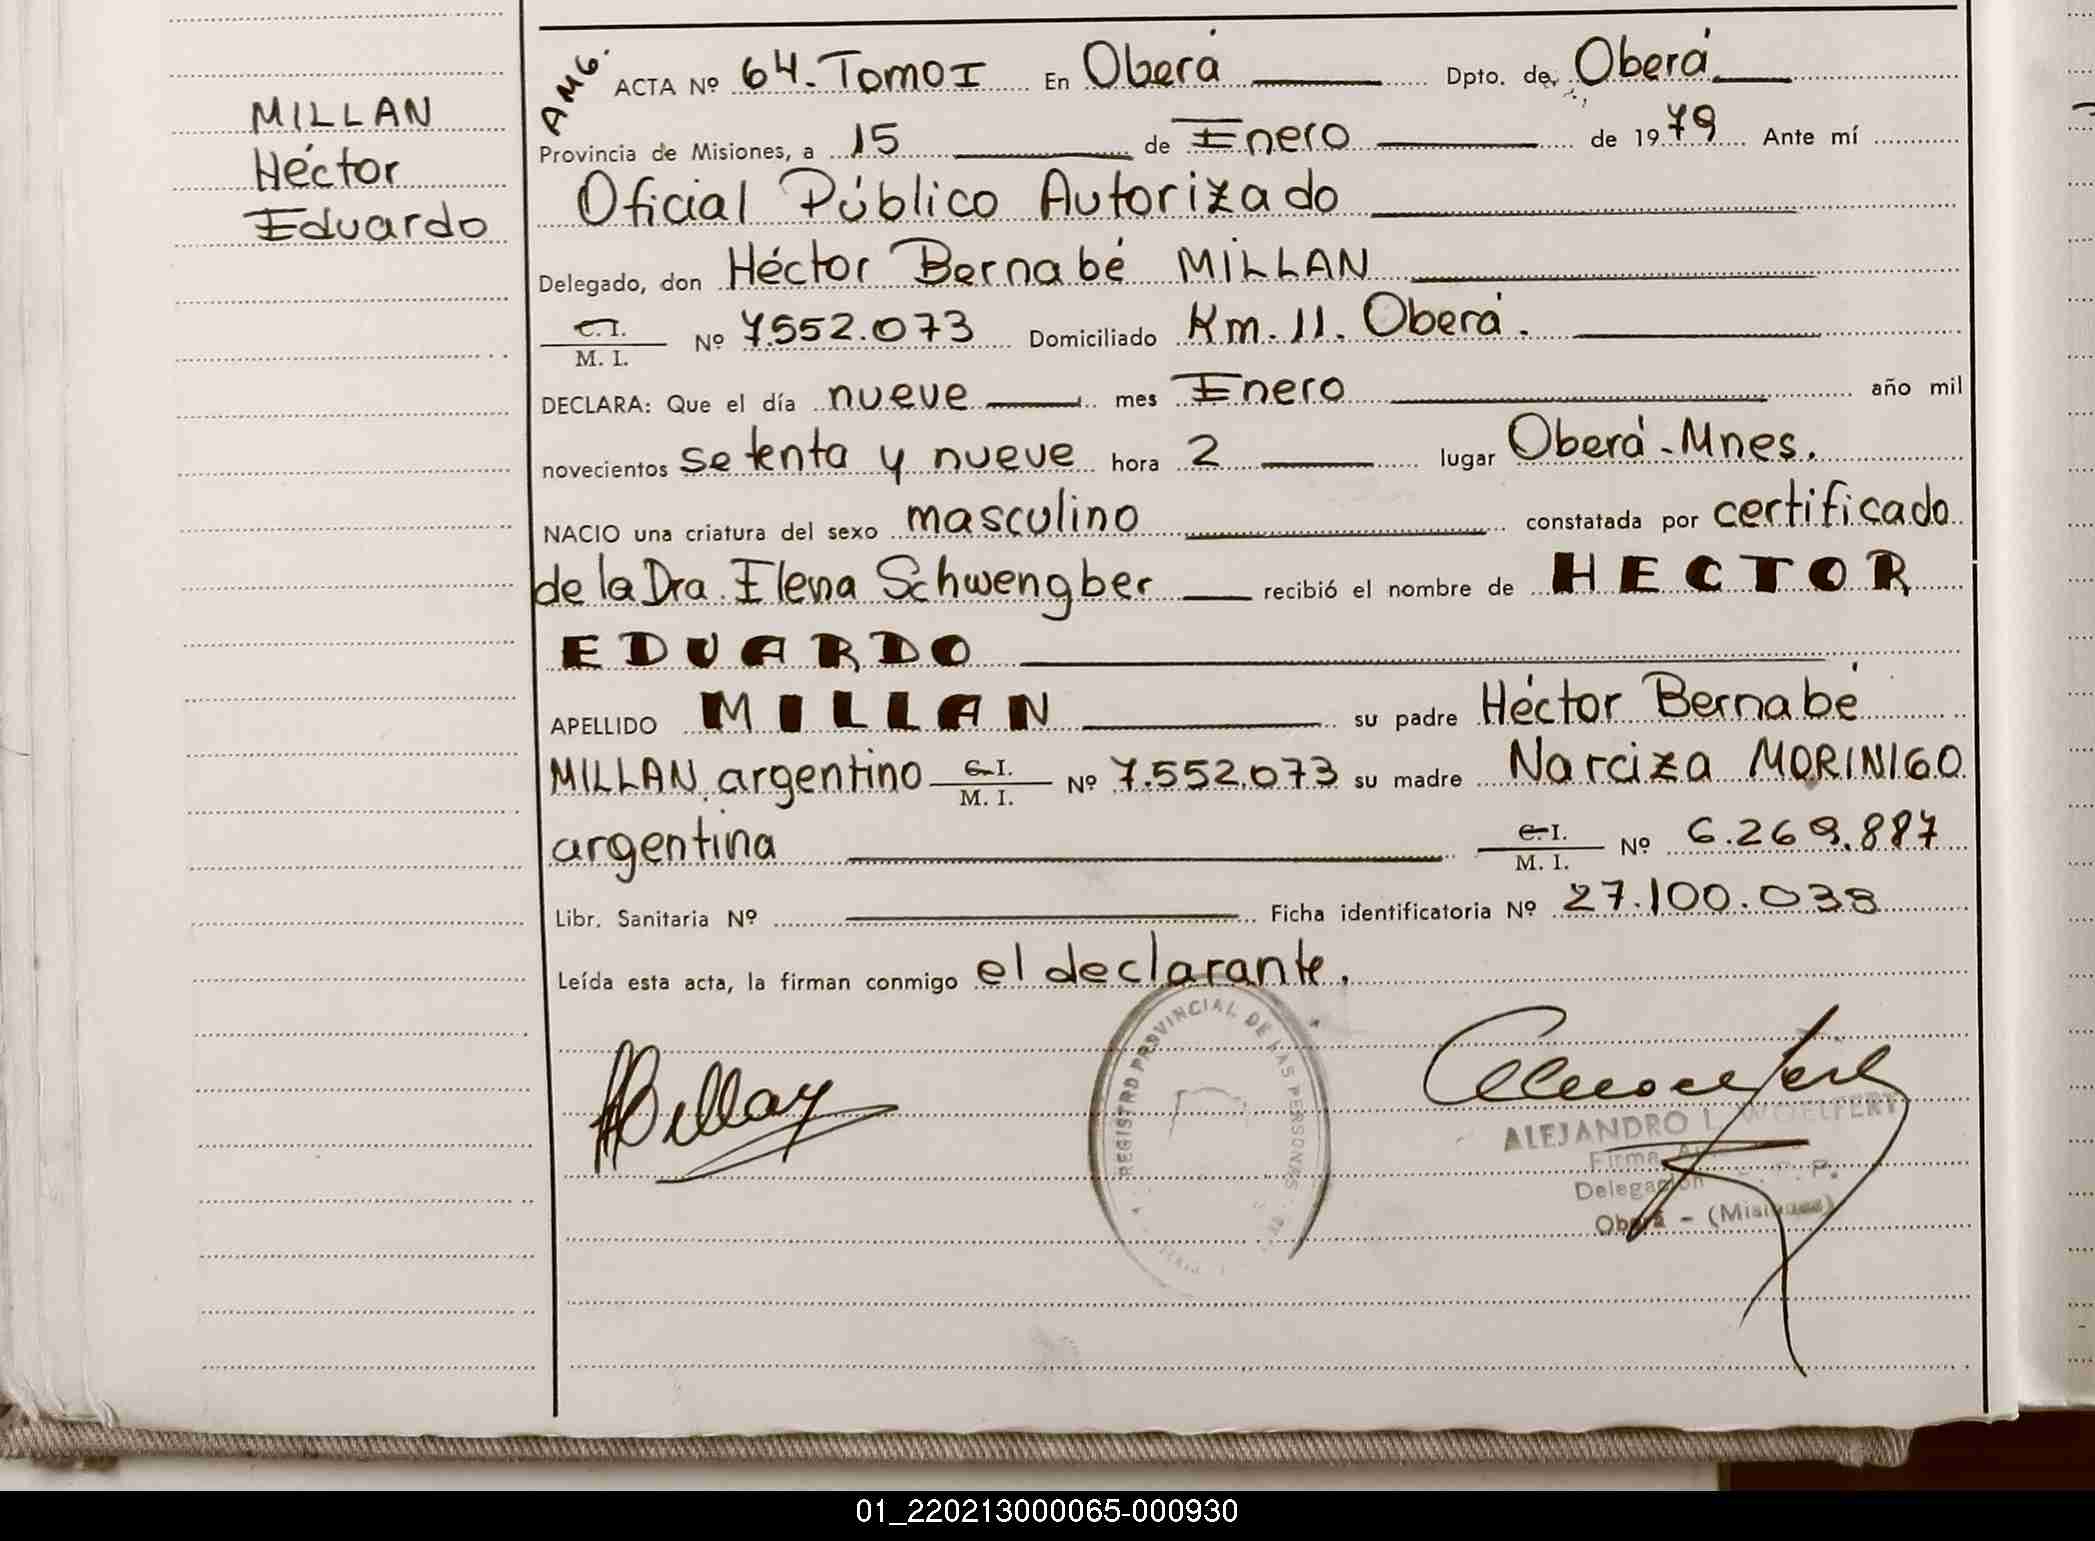 MILLAN
Héctor
Eduardo
AMG.
ACTA Nº 64. Tomo I En Oberá Dpto. de Oberá
Provincia de Misiones, a 15 de Enero de 1979 Ante mí
Oficial Público Autorizado
Delegado, don Héctor Bernabé MILLAN
C. I.
M. I. Nº 7.552.073 Domiciliado Km. 11. Oberá.
DECLARA: Que el día nueve mes Enero año mil
novecientos setenta y nueve hora 2 lugar Oberá - Mnes.
NACIO una criatura del sexo masculino constatada por certificado
de la Dra. Elena Schwengber recibió el nombre de HECTOR
EDUARDO
APELLIDO MILLAN su padre Héctor Bernabé
MILLAN argentino C. I. M. I. Nº 7.552.073 su madre Narciza MORINIGO
argentina C. I. M. I. Nº 6.269.887
Libr. Sanitaria Nº Ficha identificatoria Nº 27.100.038
Leída esta acta, la firman conmigo el declarante.
REGISTRO PROVINCIAL DE LAS PERSONAS
HMillan
ALEJANDRO L. WOELFERT
Firma
Delegación
Oberá - (Misiones)
01_220213000065-000930